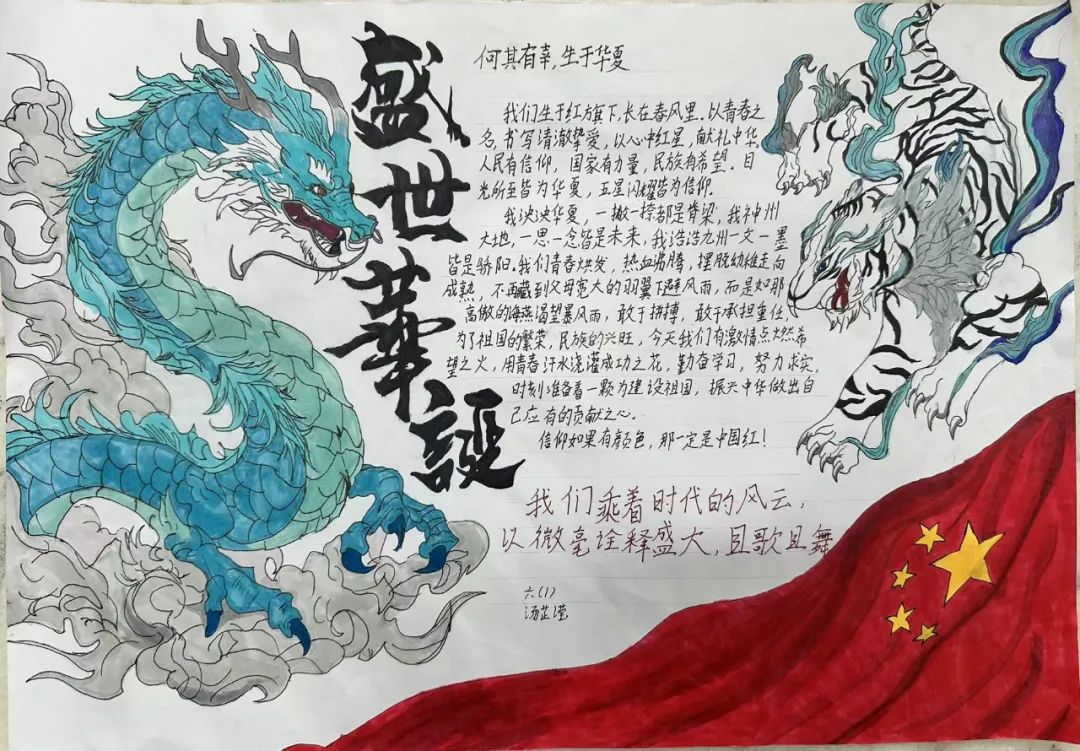 盛世華誕
何其有幸,生于华夏
我们生于红方旗下,长在春风里.以青春之
名,书写清澈挚爱,以心中红星,献礼中华.
人民有信仰,国家有力量,民族有希望.目
光所至皆为华夏,五星闪耀皆为信仰.
我泱泱华夏,一撇一捺都是脊梁,我神州
大地,一思一念皆是未来,我浩浩九州一文一墨
皆是骄阳.我们青春烘发,热血沸腾,摆脱幼稚走向
成熟,不再藏到父母宽大的羽翼下避风雨,而是如那
高傲的海燕渴望暴风雨,敢于拼搏,敢于承担重任,
为了祖国的繁荣,民族的兴旺,今天我们有激情点燃希
望之火,用青春汗水浇灌成功之花,勤奋学习,努力求实,
时刻准备着一颗为建设祖国,振兴中华做出自
己应有的贡献之心.
信仰如果有颜色,那一定是中国红!
我们乘着时代的风云,
以微毫诠释盛大,且歌且舞
六(1)
汤芷滢